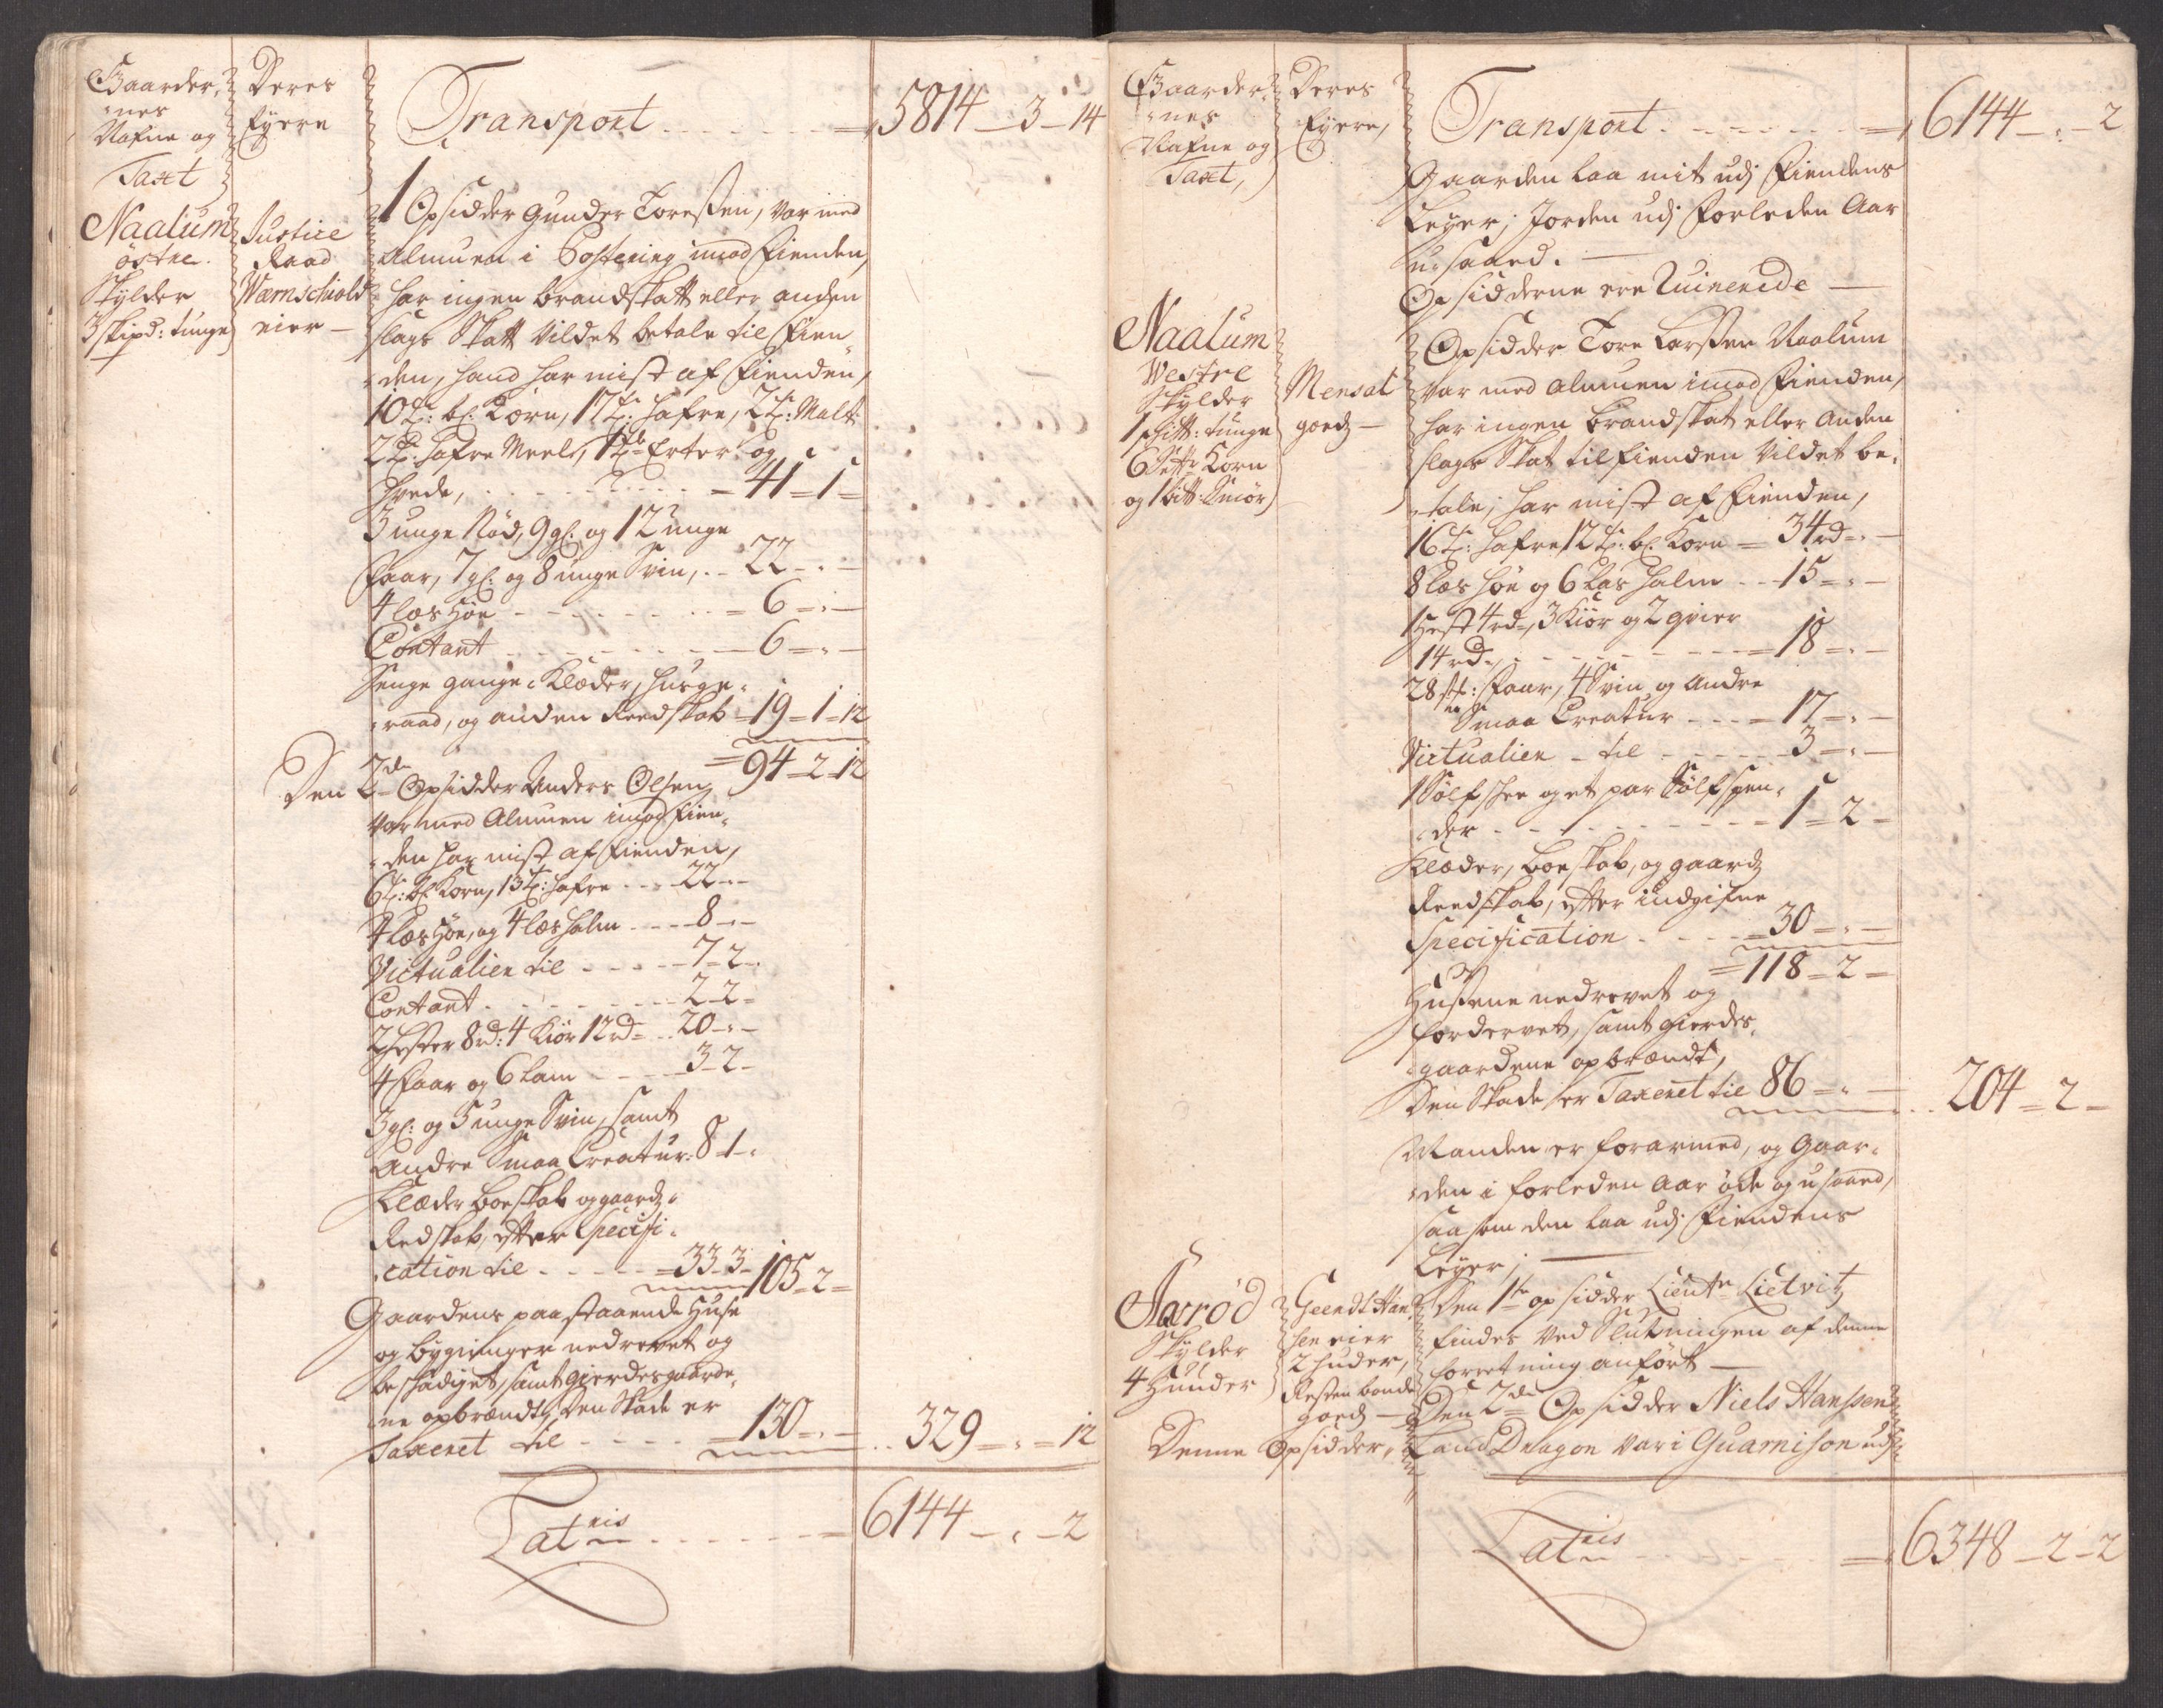 Gaarder,
nes
Nafne og
Taxt
Deres
Eyere
Transport 5814 - 3 - 14
Naalum
östre
Skylder
3 skipd: tunge
Justice
Raad
Wærnschiold
eier -
1 Opsidder Gunder Toressen, var med
Almuen i Postering imod Fienden,
har ingen brandskatt eller anden
slags Skatt vildet betale til Fien
den, hand har mist af Fienden,
10 t: bl: Korn, 17 t: Hafre, 2 t: Malt
2 t: Hafre Meel, 1 t: Erter og
Hvede, = 41 = 1 =
3 unge Nød, 9 gl: og 12 unge
Faar, 7 gl: og 8 unge Svin, - 22 - . -
4 læs Høe - = 6 = . -
Contant - 6 = . -
Senge gange Klæder, husge,
raad, og anden Reedskab = 19 = 1 = 12
= 94 - 2 - 12
Den 2de Opsidder Anders Olsen
var med Almuen imod Fien,
den har mist af Fienden,
6 t: bl: Korn, 13 t: Hafre - 22 - -
4 læs Høe, og 4 læs halm - 8 - -
Victualier til - 7 - 2 -
Contant - 2 - 2 =
2 Hester 8 rd: 4 Kiör 12 rd = 20 - . -
4 Faar og 6 Lam - 3 - 2 -
3 gl: og 5 unge Svin, samt
Andre Smaa Creatur: 8 - 1 -
Klæder boeskab og gaardz
Redskab, efter Specifi,
cation til - = 33 - 3 - 105 - 2 =
Gaardens paastaaende Huse
og bygninger nedrevet og
beskadiget, samt gierdesgaarde,
ne opbrændt, den Skade er
Taxeret til - = 130 = . - 329 = . = 12
Lateris - = 6144 - . - 2
Gaarder,
nes
Nafne og
Taxt,
Deres
Eyere,
Transport = 6144 - . - 2
Gaarden laa mit udj Fiendens
Leyer, Jorden udj forleden Aar
u-saaed. -
Opsidderne ere Ruinerede -
Naalum
Westre
Skylder
1 schitt: tunge
6 Sett: Korn
og 1 bitt: Smör
Mensal
goedz -
Opsidder Tore Larssen Naalum
var med Almuen imod Fienden,
har ingen brandskat eller anden
slags Skat til Fienden vildet be,
tale, har mist af Fienden,
16 t: Hafre, 12 t: bl: Korn = 34 rd = . -
8 læs Høe og 6 læs halm - 15 = . -
1 Hest 4 rd, 3 Kiör og 2 qvier
14 rd, - = 18 = . -
28 st: Faar, 4 Svin og Andre
Smaa Creatur - = 17 = . -
Victualier - til - 3 = . -
1 Sölf skee og et par Sölfspen,
der - = 1 = 2 -
Klæder, boeskab, og gaardz
Reedskab, efter indgifne
Specification - = 30 = . -
= 118 - 2 -
Husene nedrevet og
fordervet, samt gierdes,
gaardene opbrændt,
Den Skade er Taxeret til 86 = . - 204 = 2 -
Manden er forarmed, og Gaar,
den i forleden Aar öde og usaaed,
saasom den laa udj Fiendens
Leyer,
Aarød
Skylder
4 Hunder
Geendt Han,
sen eier
2 huder,
Resten bonde
goedz -
Den 1te opsidder Lieutn Lietvitz
findes ved Slutningen af denne
forretning anfört -
Den 2de Opsidder Niels Hanssen
Denne Opsidder, Land Dragon var i Guarnison udj
Lateris = 6348 - 2 - 2